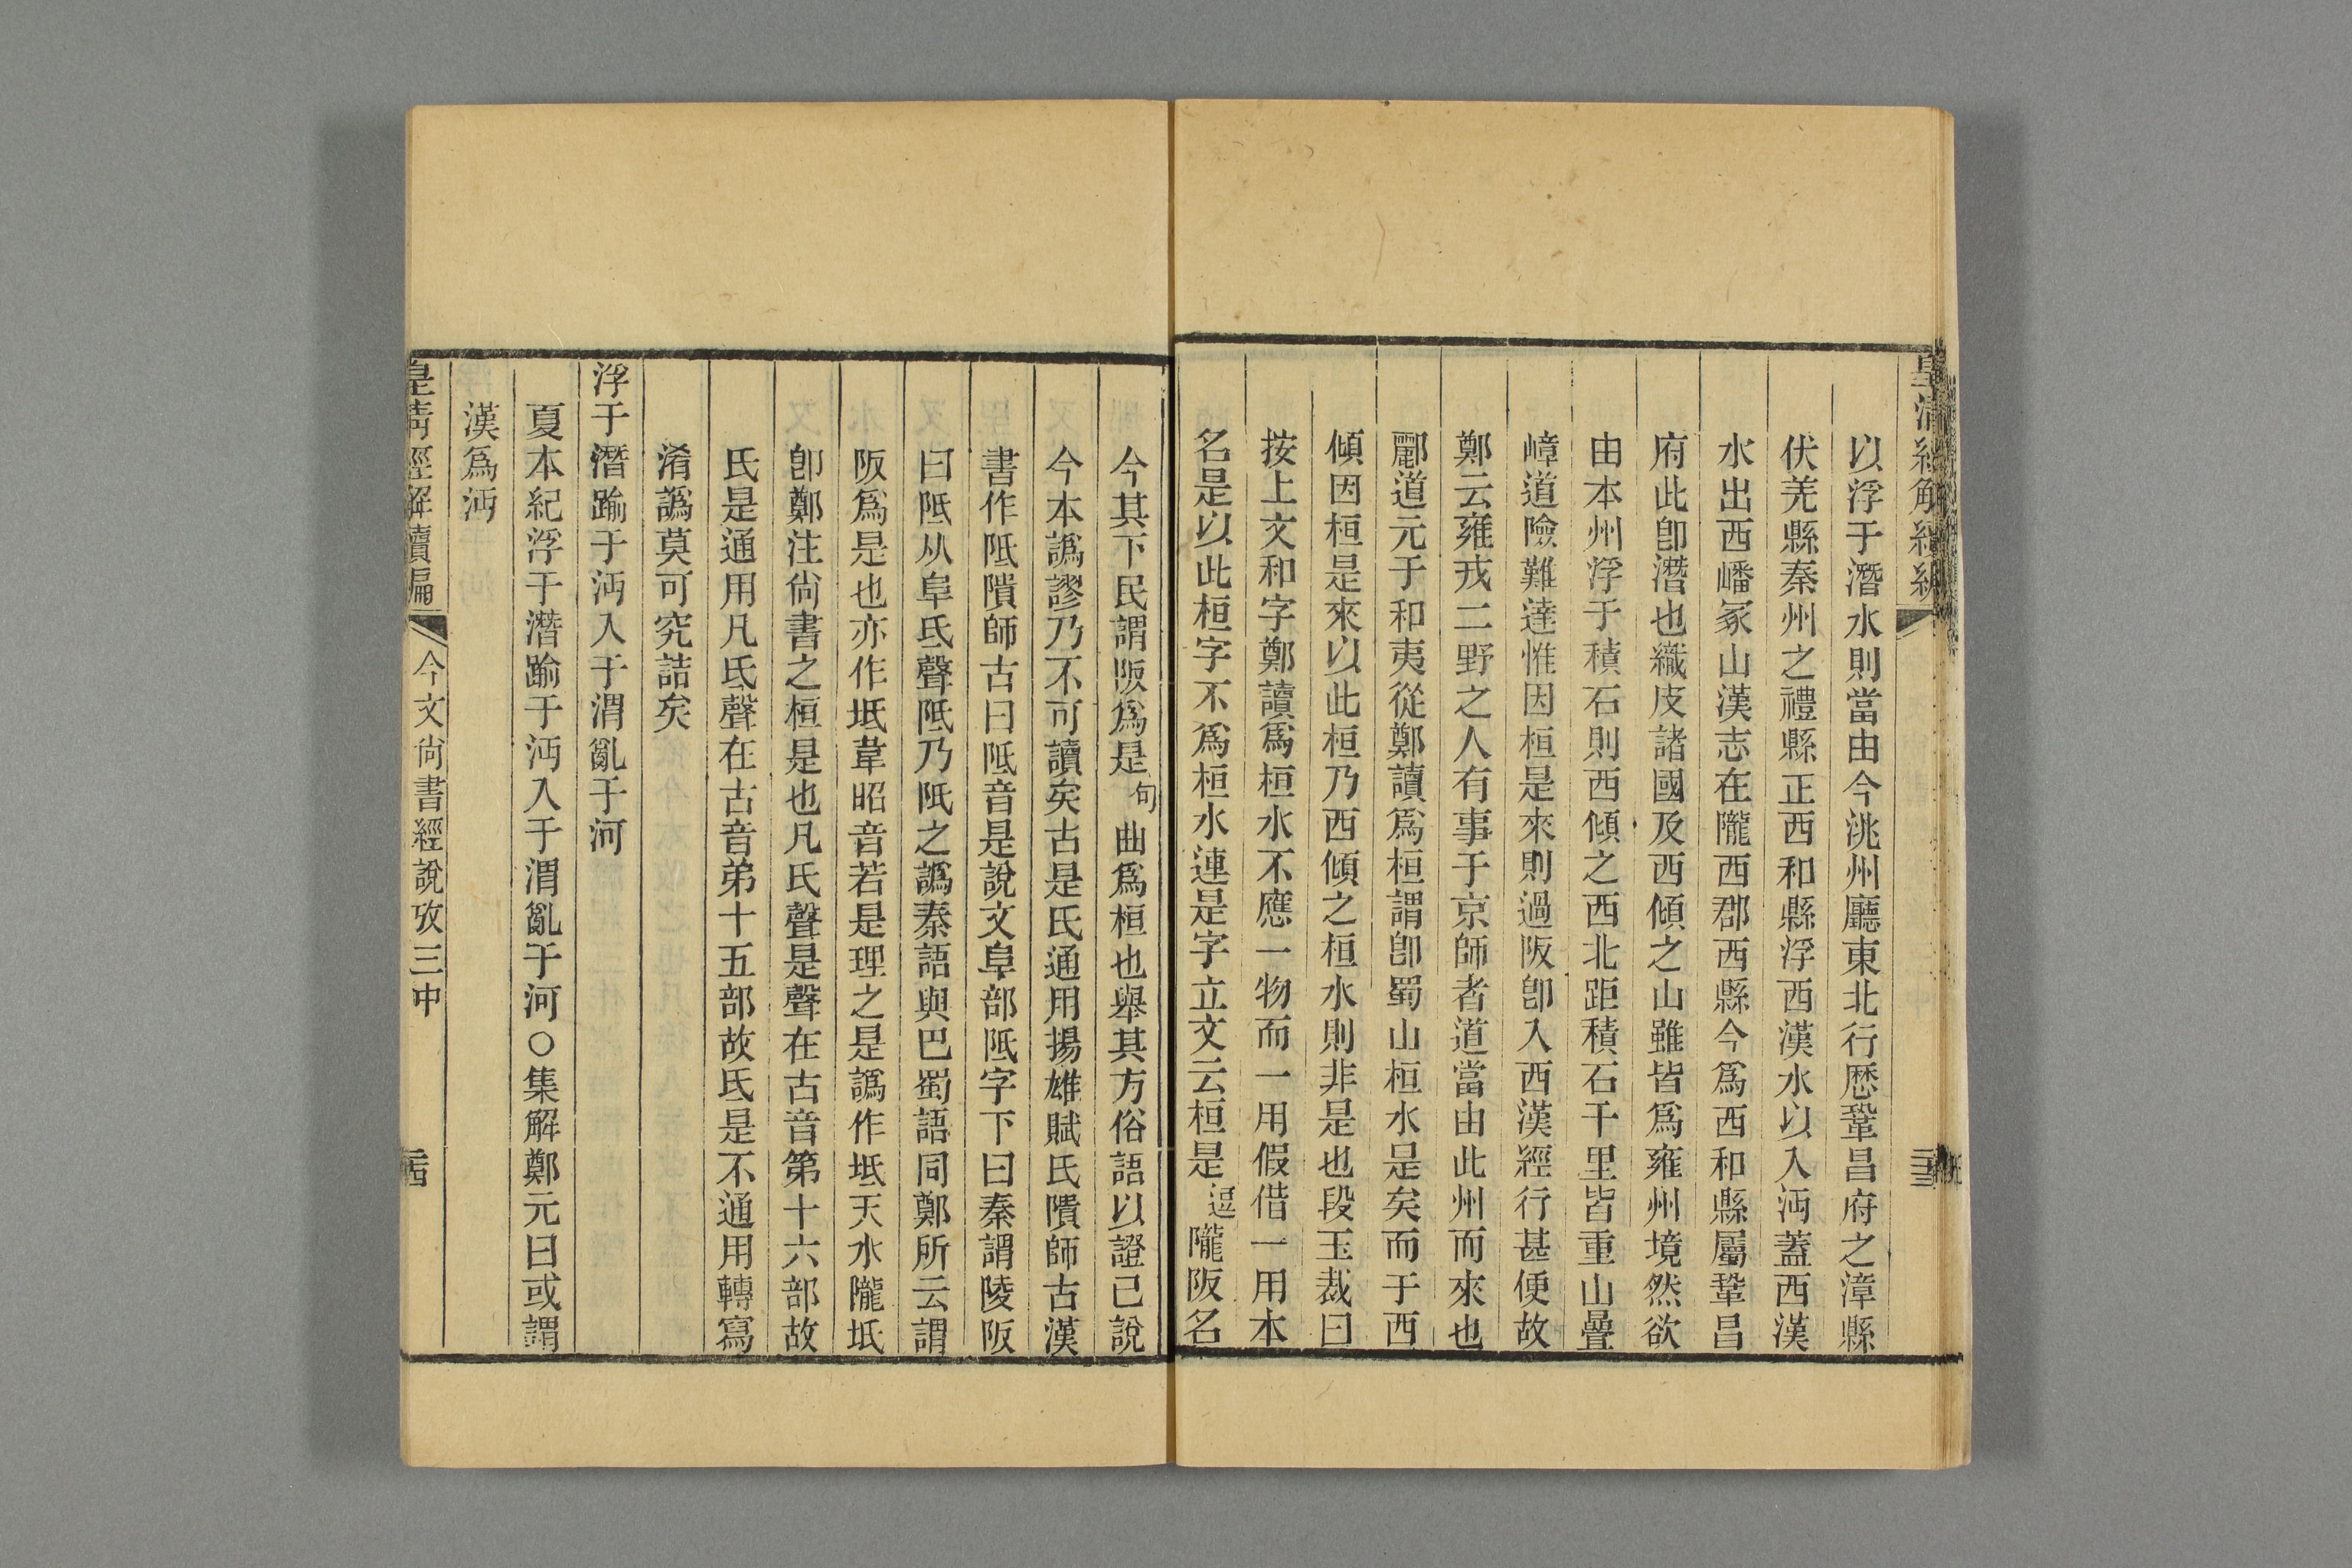 以浮于潛水則當由今洮州廳東北行歷鞏昌府之漳縣
伏羌縣秦州之禮縣正西和縣浮西漢水以入沔蓋西漢
水出西嶓冢山漢志在隴西郡西縣今爲西和縣屬鞏昌
府此卽潛也織皮諸國及西傾之山雖皆爲雍州境然欲
由本州浮于積石則西傾之西北距積石千里皆重山疊
嶂道險難達惟因桓是來則過阪卽入西漢經行甚便故
鄭云雍戎二野之人有事于京師者道當由此州而來也
酈道元于和夷從鄭讀爲桓謂卽蜀山桓水是矣而于西
傾因桓是來以此桓乃西傾之桓水則非是也段玉裁曰
按上文和字鄭讀爲桓水不應一物而一用假借一用本
名是以此桓字不爲桓水連是字立文云桓是逗隴阪名
今其下民謂阪爲是句曲爲桓也舉其方俗語以證己說
今本譌謬乃不可讀矣古是氏通用揚雄賦氏隤師古漢
書作阺隤師古曰阺音是說文阜部阺字下曰秦謂陵阪
曰阺从阜氐聲阺乃阺之譌秦語與巴蜀語同鄭所云謂
阪爲是也亦作坻韋昭音若是理之是譌作坻天水隴坻
卽鄭注尙書之桓是也凡氏聲是聲在古音第十六部故
氏是通用凡氐聲在古音弟十五部故氐是不通用轉寫
淆譌莫可究詰矣
浮于潛踰于沔入于渭亂于河
夏本紀浮于潛踰于沔入于渭亂于河○集解鄭元曰或謂
漢爲沔
皇淸經解續編
今文尙書經說攷三中